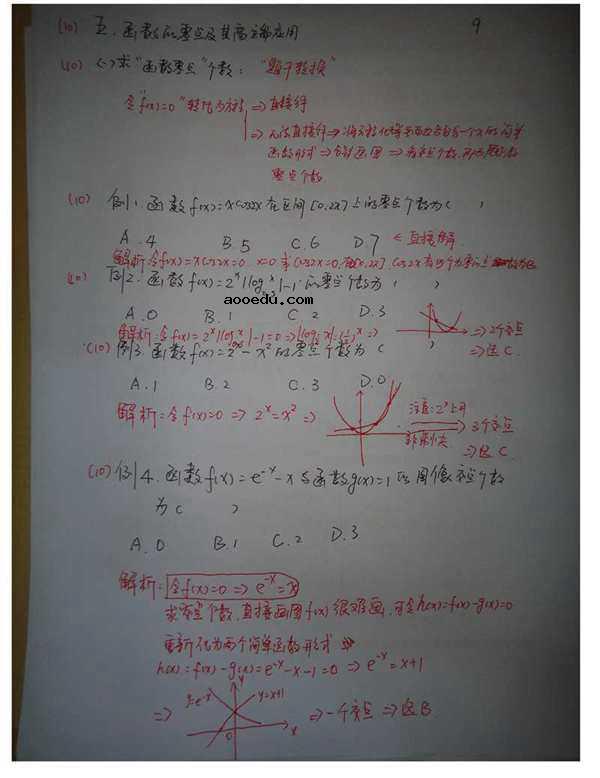 9
(10) 五、函数的零点及其高考应用
(10) (一)求"函数零点"个数："题干转换"
令"f(x)=0"转化为方程 ⇒ 直接解
⇒ 无法直接解 → 将方程化等号两边各含一个x的简单
函数形式 → 分别画图 ⇒ 交点个数即为
零点个数
(10) 例1. 函数f(x)=xcos2x在区间[0,2π]上的零点个数为( )
A.4 B.5 C.6 D.7 ← 直接解
解析:令f(x)=xcos2x=0. x=0或cos2x=0,
(10) 例2. 函数f(x)=2^x|log x|-1的零点个数为( )
aooedu.com
A.0 B.1 C.2 D.3
解析:令f(x)=2^x|log x|-1=0 ⇒ |log x|=(1/2)^x ⇒ ⇒ 2个交点
⇒ 选C.
(10) 例3. 函数f(x)=2^x-x²的零点个数为( )
A.1 B.2 C.3 D.0
解析:令f(x)=0 ⇒ 2^x=x² ⇒ 注意:2^x上升
非常快 ⇒ 3个交点
⇒ 选C
(10) 例4. 函数f(x)=e^-x-x与函数g(x)=1的图像交点个数
为( )
A.0 B.1 C.2 D.3
解析:令f(x)=0 ⇒ e^-x=x
求交点个数,直接画图f(x)很难画,可令h(x)=f(x)-g(x)=0
重新化为两个简单函数形式
h(x)=f(x)-g(x)=e^-x-x-1=0 ⇒ e^-x=x+1
⇒ y=e^-x y y=x+1 0 x ⇒ 一个交点 ⇒ 选B